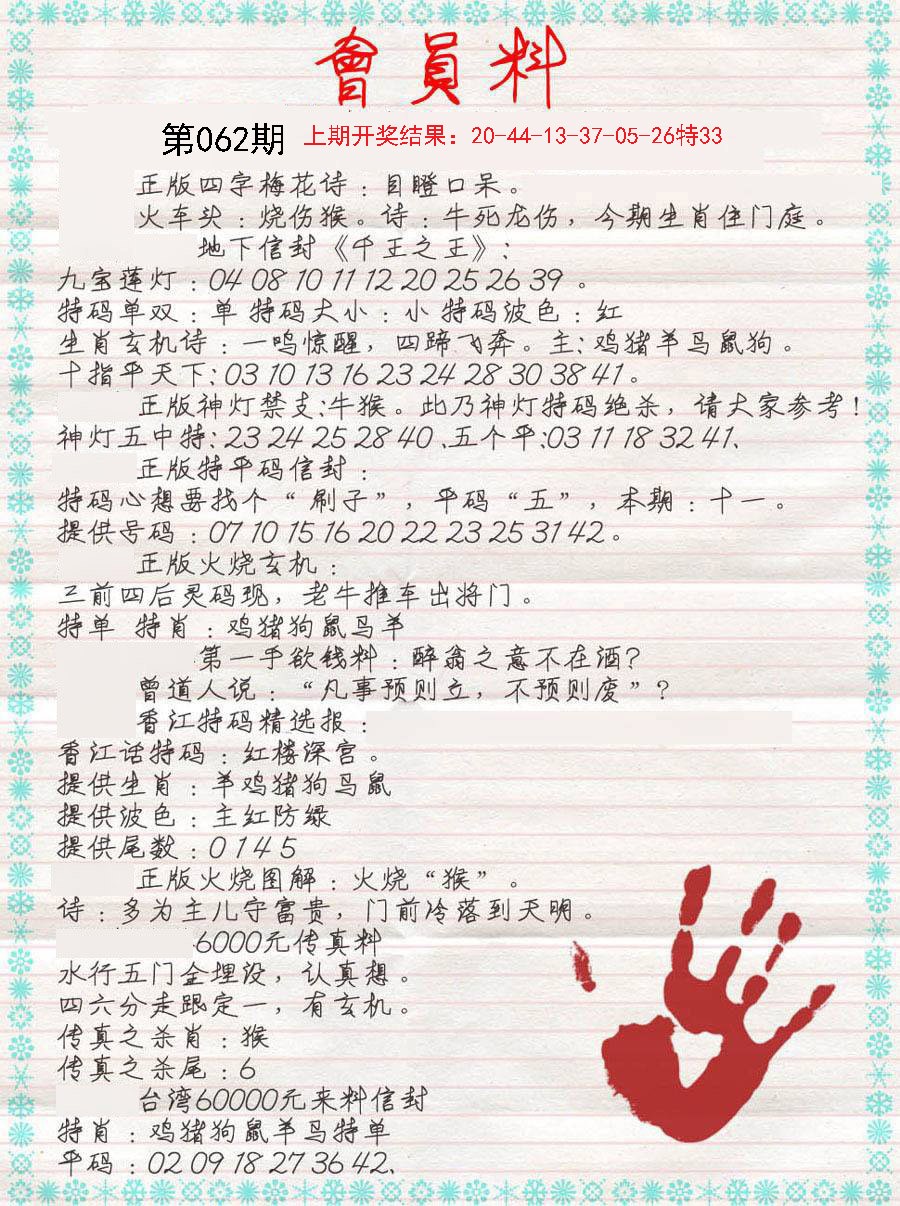 會員料
第062期 上期开奖结果：20-44-13-37-05-26特33
正版四字梅花诗：目瞪口呆。
火车头：烧伤猴。诗：牛死龙伤，今期生肖住门庭。
地下信封《千王之王》：
九宝莲灯：04 08 10 11 12 20 25 26 39 。
特码单双：单 特码大小：小 特码波色：红
生肖玄机诗：一鸣惊醒，四蹄飞奔。主：鸡猪羊马鼠狗。
十指平天下：03 10 13 16 23 24 28 30 38 41。
正版神灯禁支：牛猴。此乃神灯特码绝杀，请大家参考！
神灯五中特：23 24 25 28 40 、五个平：03 11 18 32 41、
正版特平码信封：
特码心想要找个“刷子”，平码“五”，本期：十一。
提供号码：07 10 15 16 20 22 23 25 31 42 。
正版火烧玄机：
三前四后灵码现，老牛推车出将门。
特单 特肖：鸡猪狗鼠马羊
第一手欲钱料：醉翁之意不在酒？
曾道人说：“凡事预则立，不预则废”？
香江特码精选报：
香江话特码：红楼深宫。
提供生肖：羊鸡猪狗马鼠
提供波色：主红防绿
提供尾数：0 1 4 5
正版火烧图解：火烧“猴”。
诗：多为主儿守富贵，门前冷落到天明。
6000元传真料
水行五门金埋没，认真想。
四六分走跟定一，有玄机。
传真之杀肖：猴
传真之杀尾：6
台湾60000元来料信封
特肖：鸡猪狗鼠羊马特单
平码：02 09 18 27 36 42、